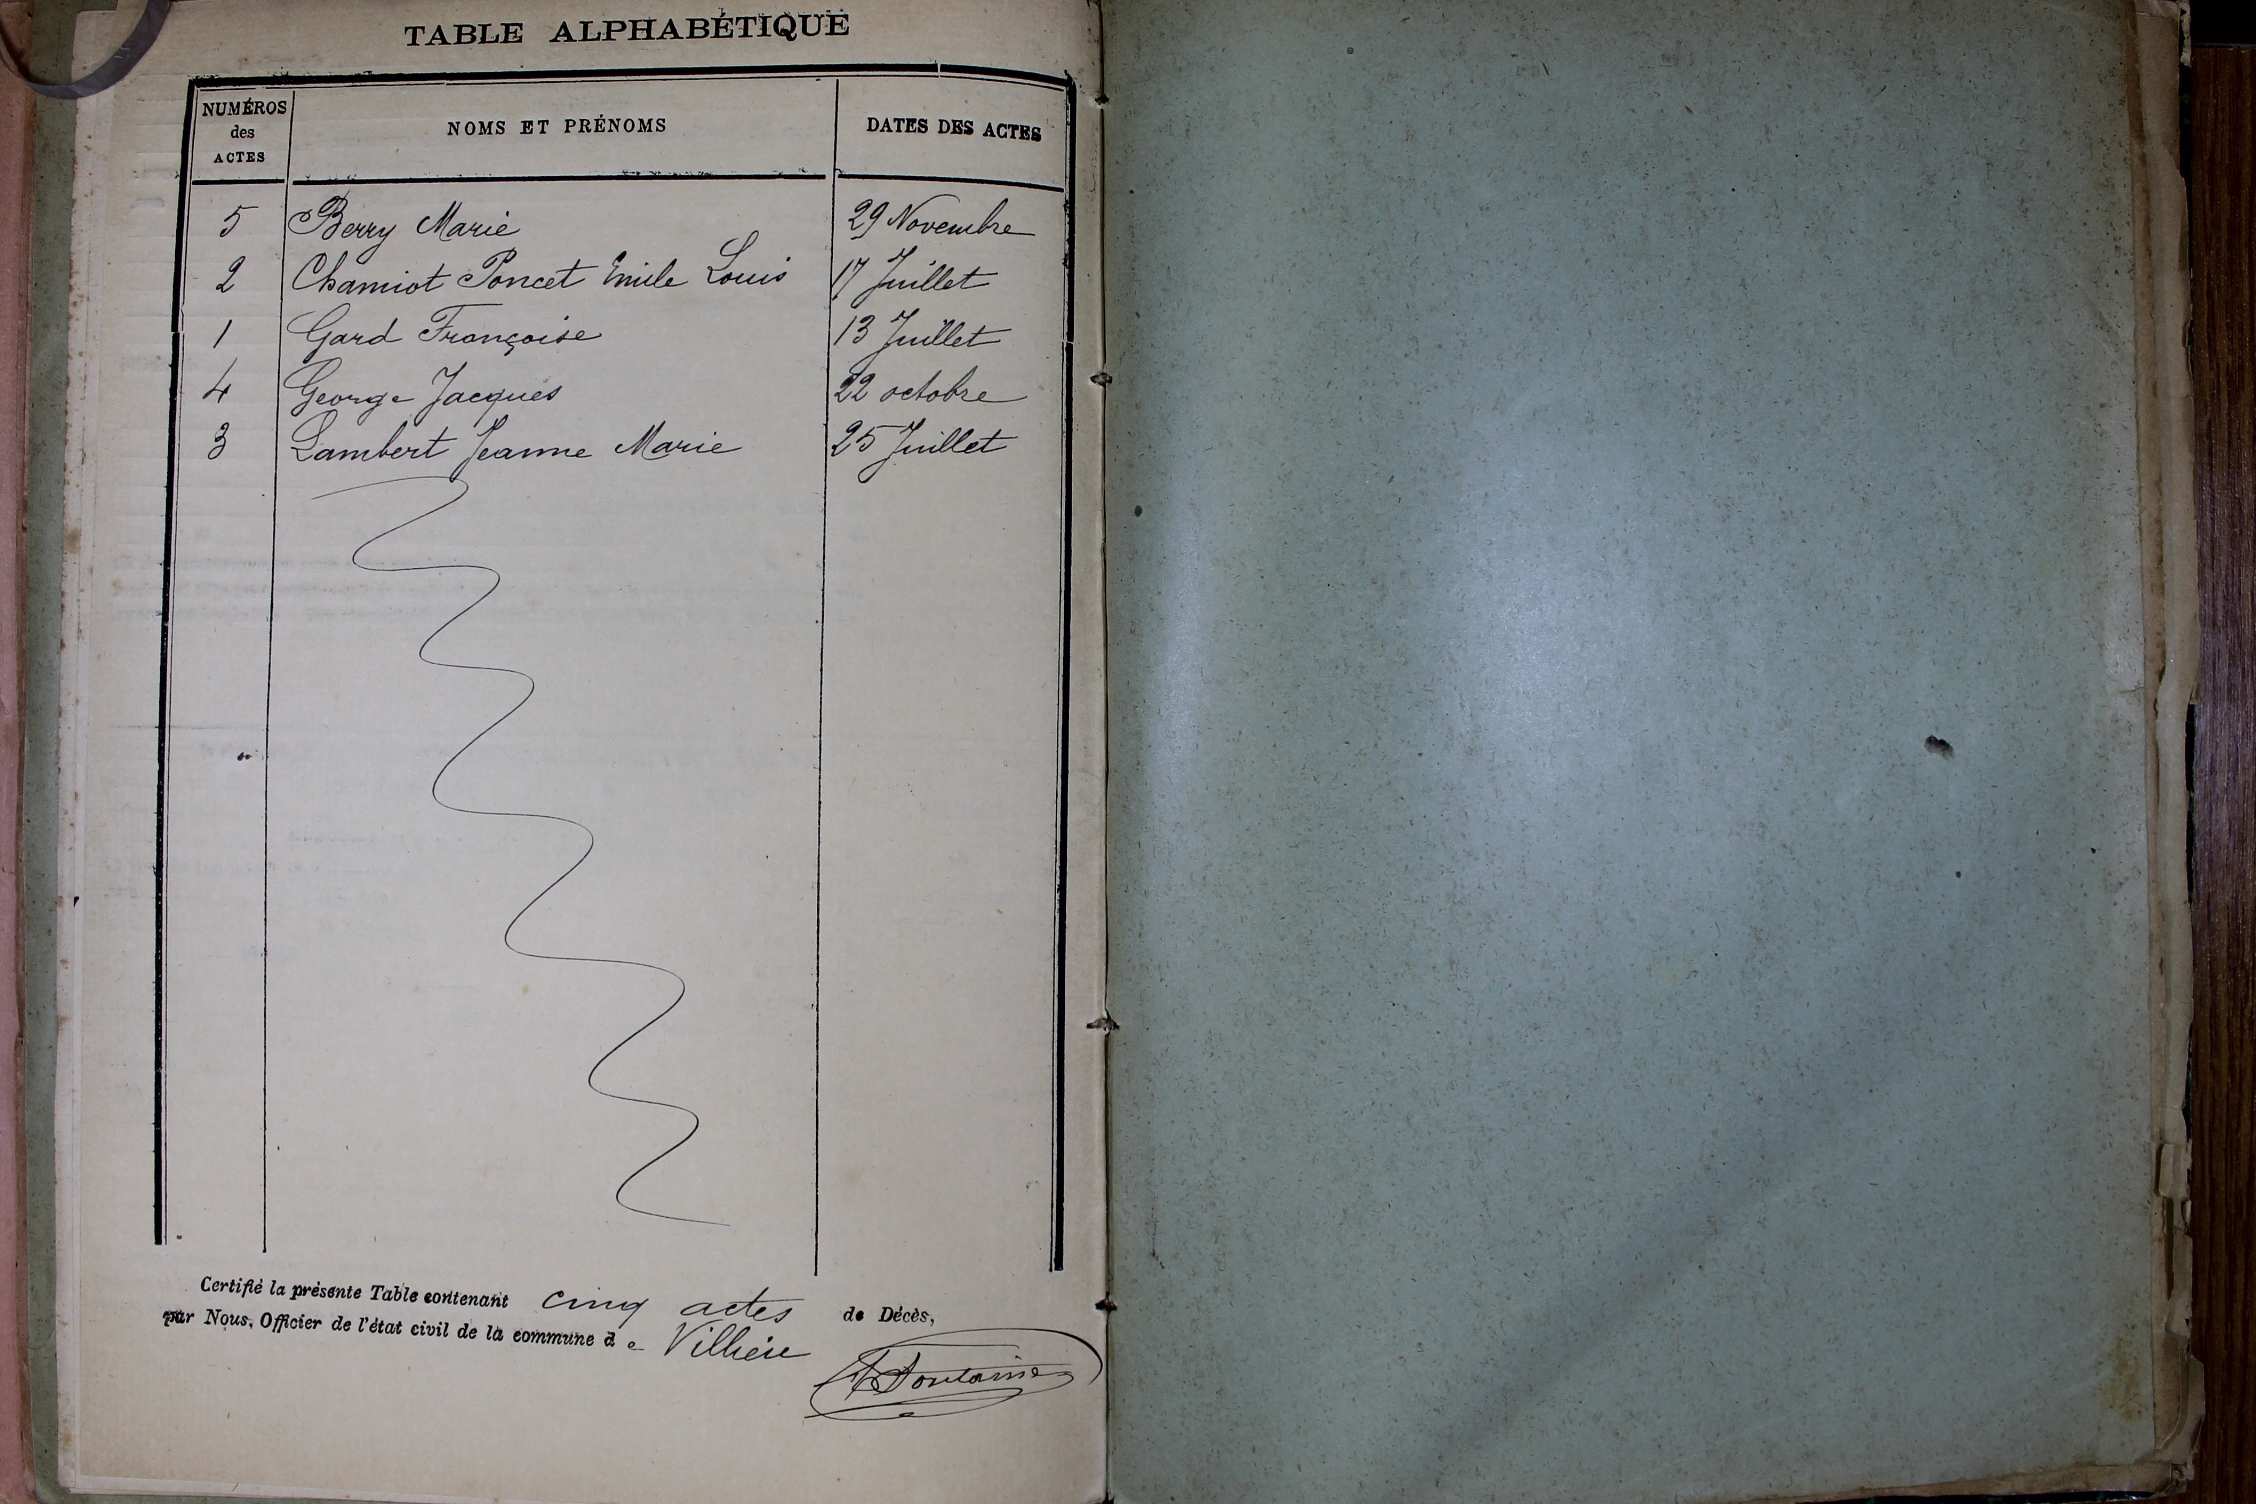 TABLE ALPHABÉTIQUE
NUMÉROS des ACTES NOMS ET PRÉNOMS DATES DES ACTES
5 Berry Marie 29 Novembre
2 Chamiot Poncet Emile Louis 17 Juillet
1 Gard Françoise 13 Juillet
4 George Jacques 22 octobre
3 Lambert Jeanne Marie 25 Juillet
Certifié la présente Table contenant cinq actes de Décès,
par Nous, Officier de l'état civil de la commune de